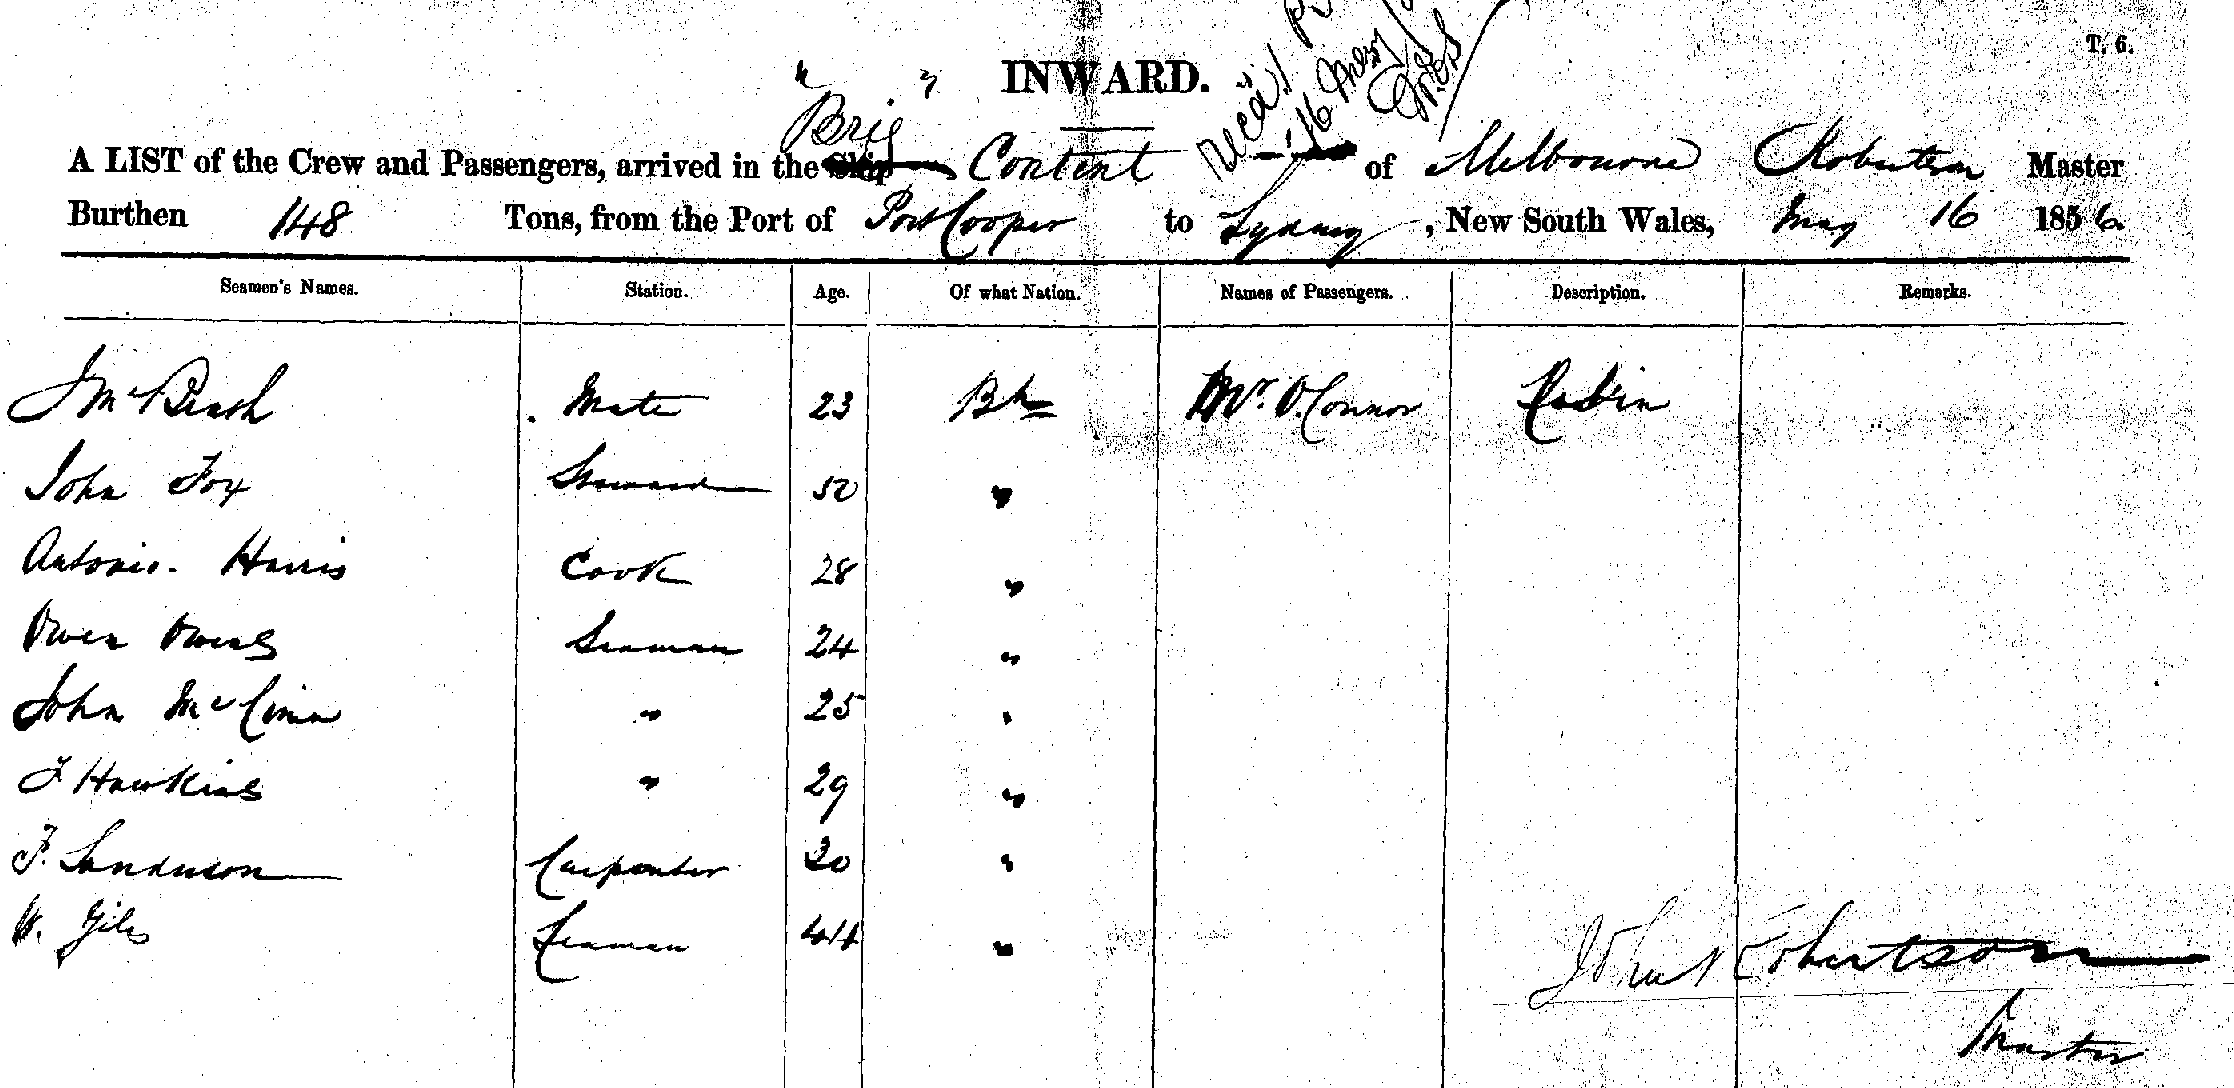 T. 6.
INWARD.
Rec'd
16 May
" Brig "
A LIST of the Crew and Passengers, arrived in the Ship Content of Melbourne Robertson Master
Burthen 148 Tons, from the Port of Port Cooper to Sydney, New South Wales, May 16 1856
Seamen's Names. Station. Age. Of what Nation. Names of Passengers. Description. Remarks.
J McBeath Mate 23 Bh Mr. O'Connor Cabin
John Fox Steward 50 "
Antonio. Harris Cook 28 "
Owen Owens Seaman 24 "
John " 25 "
J Hawkins " 29 "
F. Sanderson Carpenter 20 "
W. Giles Seaman 44 "
John Robertson
Master